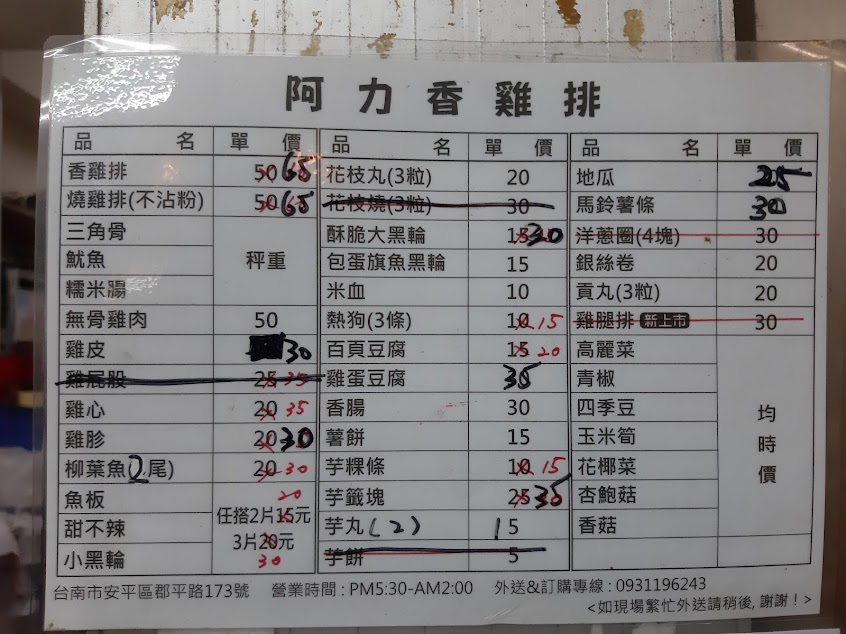 阿力香雞排
品名 單價 品名 單價 品名 單價
香雞排 50 65 花枝丸(3粒) 20 地瓜 25
燒雞排(不沾粉) 50 65 花枝燒(3粒) 30 馬鈴薯條 30
三角骨 秤重 酥脆大黑輪 15 30 洋蔥圈(4塊) 30
魷魚 包蛋旗魚黑輪 15 銀絲卷 20
糯米腸 米血 10 貢丸(3粒) 20
無骨雞肉 50 熱狗(3條) 10 15 雞腿排 新上市 30
雞皮 30 百頁豆腐 15 20 高麗菜 均時價
雞屁股 25 35 雞蛋豆腐 35 青椒
雞心 20 35 香腸 30 四季豆
雞胗 20 30 薯餅 15 玉米筍
柳葉魚(2尾) 20 30 芋粿條 10 15 花椰菜
魚板 任搭2片15元 20 芋籤塊 25 35 杏鮑菇
甜不辣 3片20元 30 芋丸(2) 15 香菇
小黑輪 芋餅 5
台南市安平區郡平路173號 營業時間:PM5:30-AM2:00 外送&訂購專線:0931196243
<如現場繁忙外送請稍後,謝謝!>